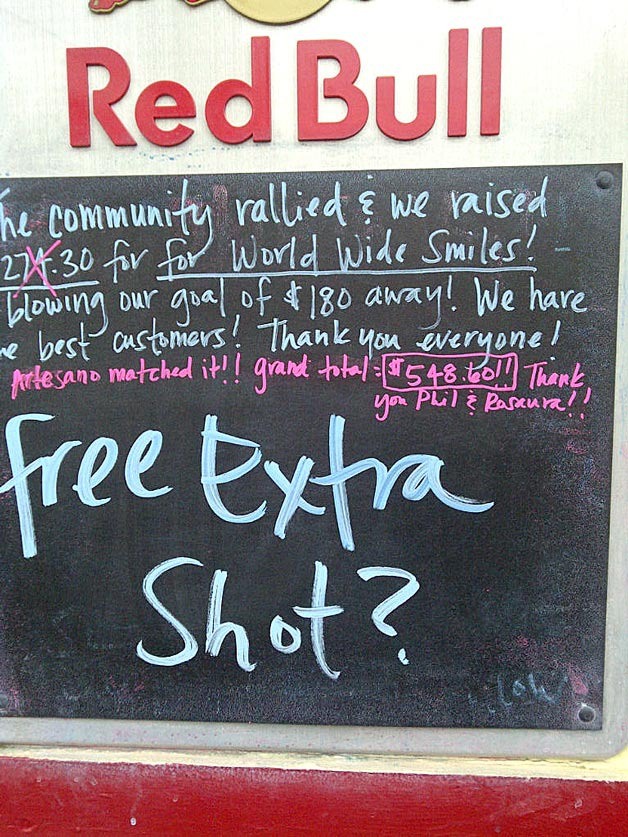 Red Bull
he community rallied & we raised
274.30 for for World Wide Smiles!
blowing our goal of $180 away! We have
e best customers! Thank you everyone!
Artesano matched it!! grand total: $548.60!! Thank
you Phil & Rosaura!!
free Extra
Shot?